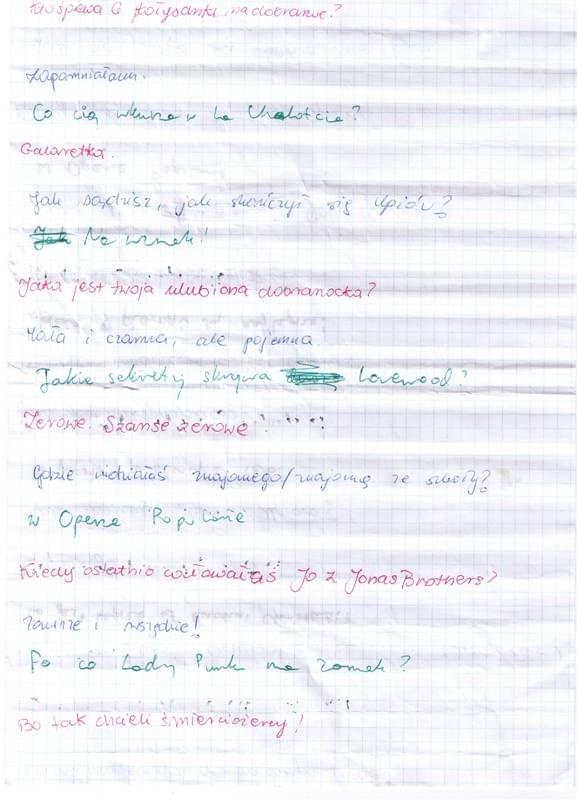 Kto śpiewa Ci kołysanki na dobranoc?
Zapomniałam.
Co cię wkurza w La Chalotcie?
Galaretka.
Jak sądzisz, jak skończył się Upiór?
Na wznak!
Jaka jest twoja ulubiona dobranocka?
Mała i czarna, ale pojemna.
Jakie sekrety skrywa Lovewood?
Zerowe. Szanse zerowe!
Gdzie widziałaś znajomego/znajomą ze szkoły?
w Operze Populaire
Kiedy ostatnio całowałaś Jo z Jonas Brothers?
Zawsze i wszędzie!
Po co Lady Punk ma zamek?
Bo tak chcieli śmierciożercy!